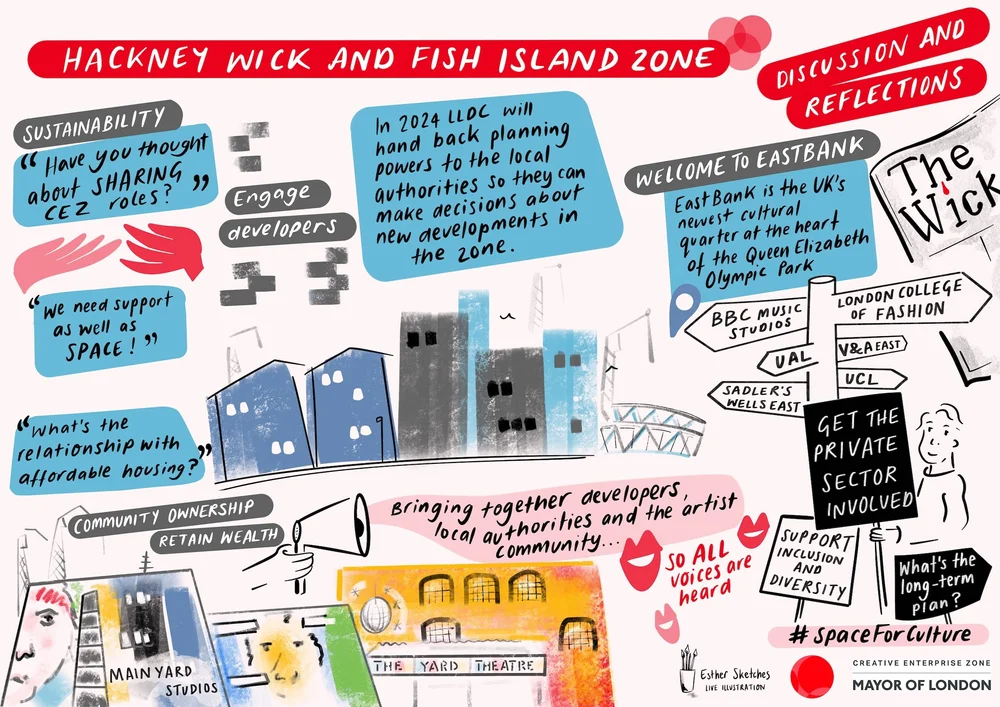 HACKNEY WICK AND FISH ISLAND ZONE
DISCUSSION AND
REFLECTIONS
SUSTAINABILITY
"Have you thought
about SHARING
CEZ roles?"
"We need support
as well as
SPACE!"
"What's the
relationship with
affordable housing?"
Engage
developers
In 2024 LLDC will
hand back planning
powers to the local
authorities so they can
make decisions about
new developments in
the zone.
WELCOME TO EASTBANK
EastBank is the UK's
newest cultural
quarter at the heart
of the Queen Elizabeth
Olympic Park
The
Wick
BBC MUSIC
STUDIOS
LONDON COLLEGE
OF FASHION
UAL
V&A EAST
UCL
SADLER'S
WELLS EAST
GET THE
PRIVATE
SECTOR
INVOLVED
SUPPORT
INCLUSION
AND
DIVERSITY
What's the
long-term
plan?
COMMUNITY OWNERSHIP
RETAIN WEALTH
Bringing together developers,
local authorities and the artist
community...
SO ALL
voices are
heard
MAINYARD
STUDIOS
THE YARD THEATRE
#SpaceForCulture
Esther Sketches
LIVE ILLUSTRATION
CREATIVE ENTERPRISE ZONE
MAYOR OF LONDON